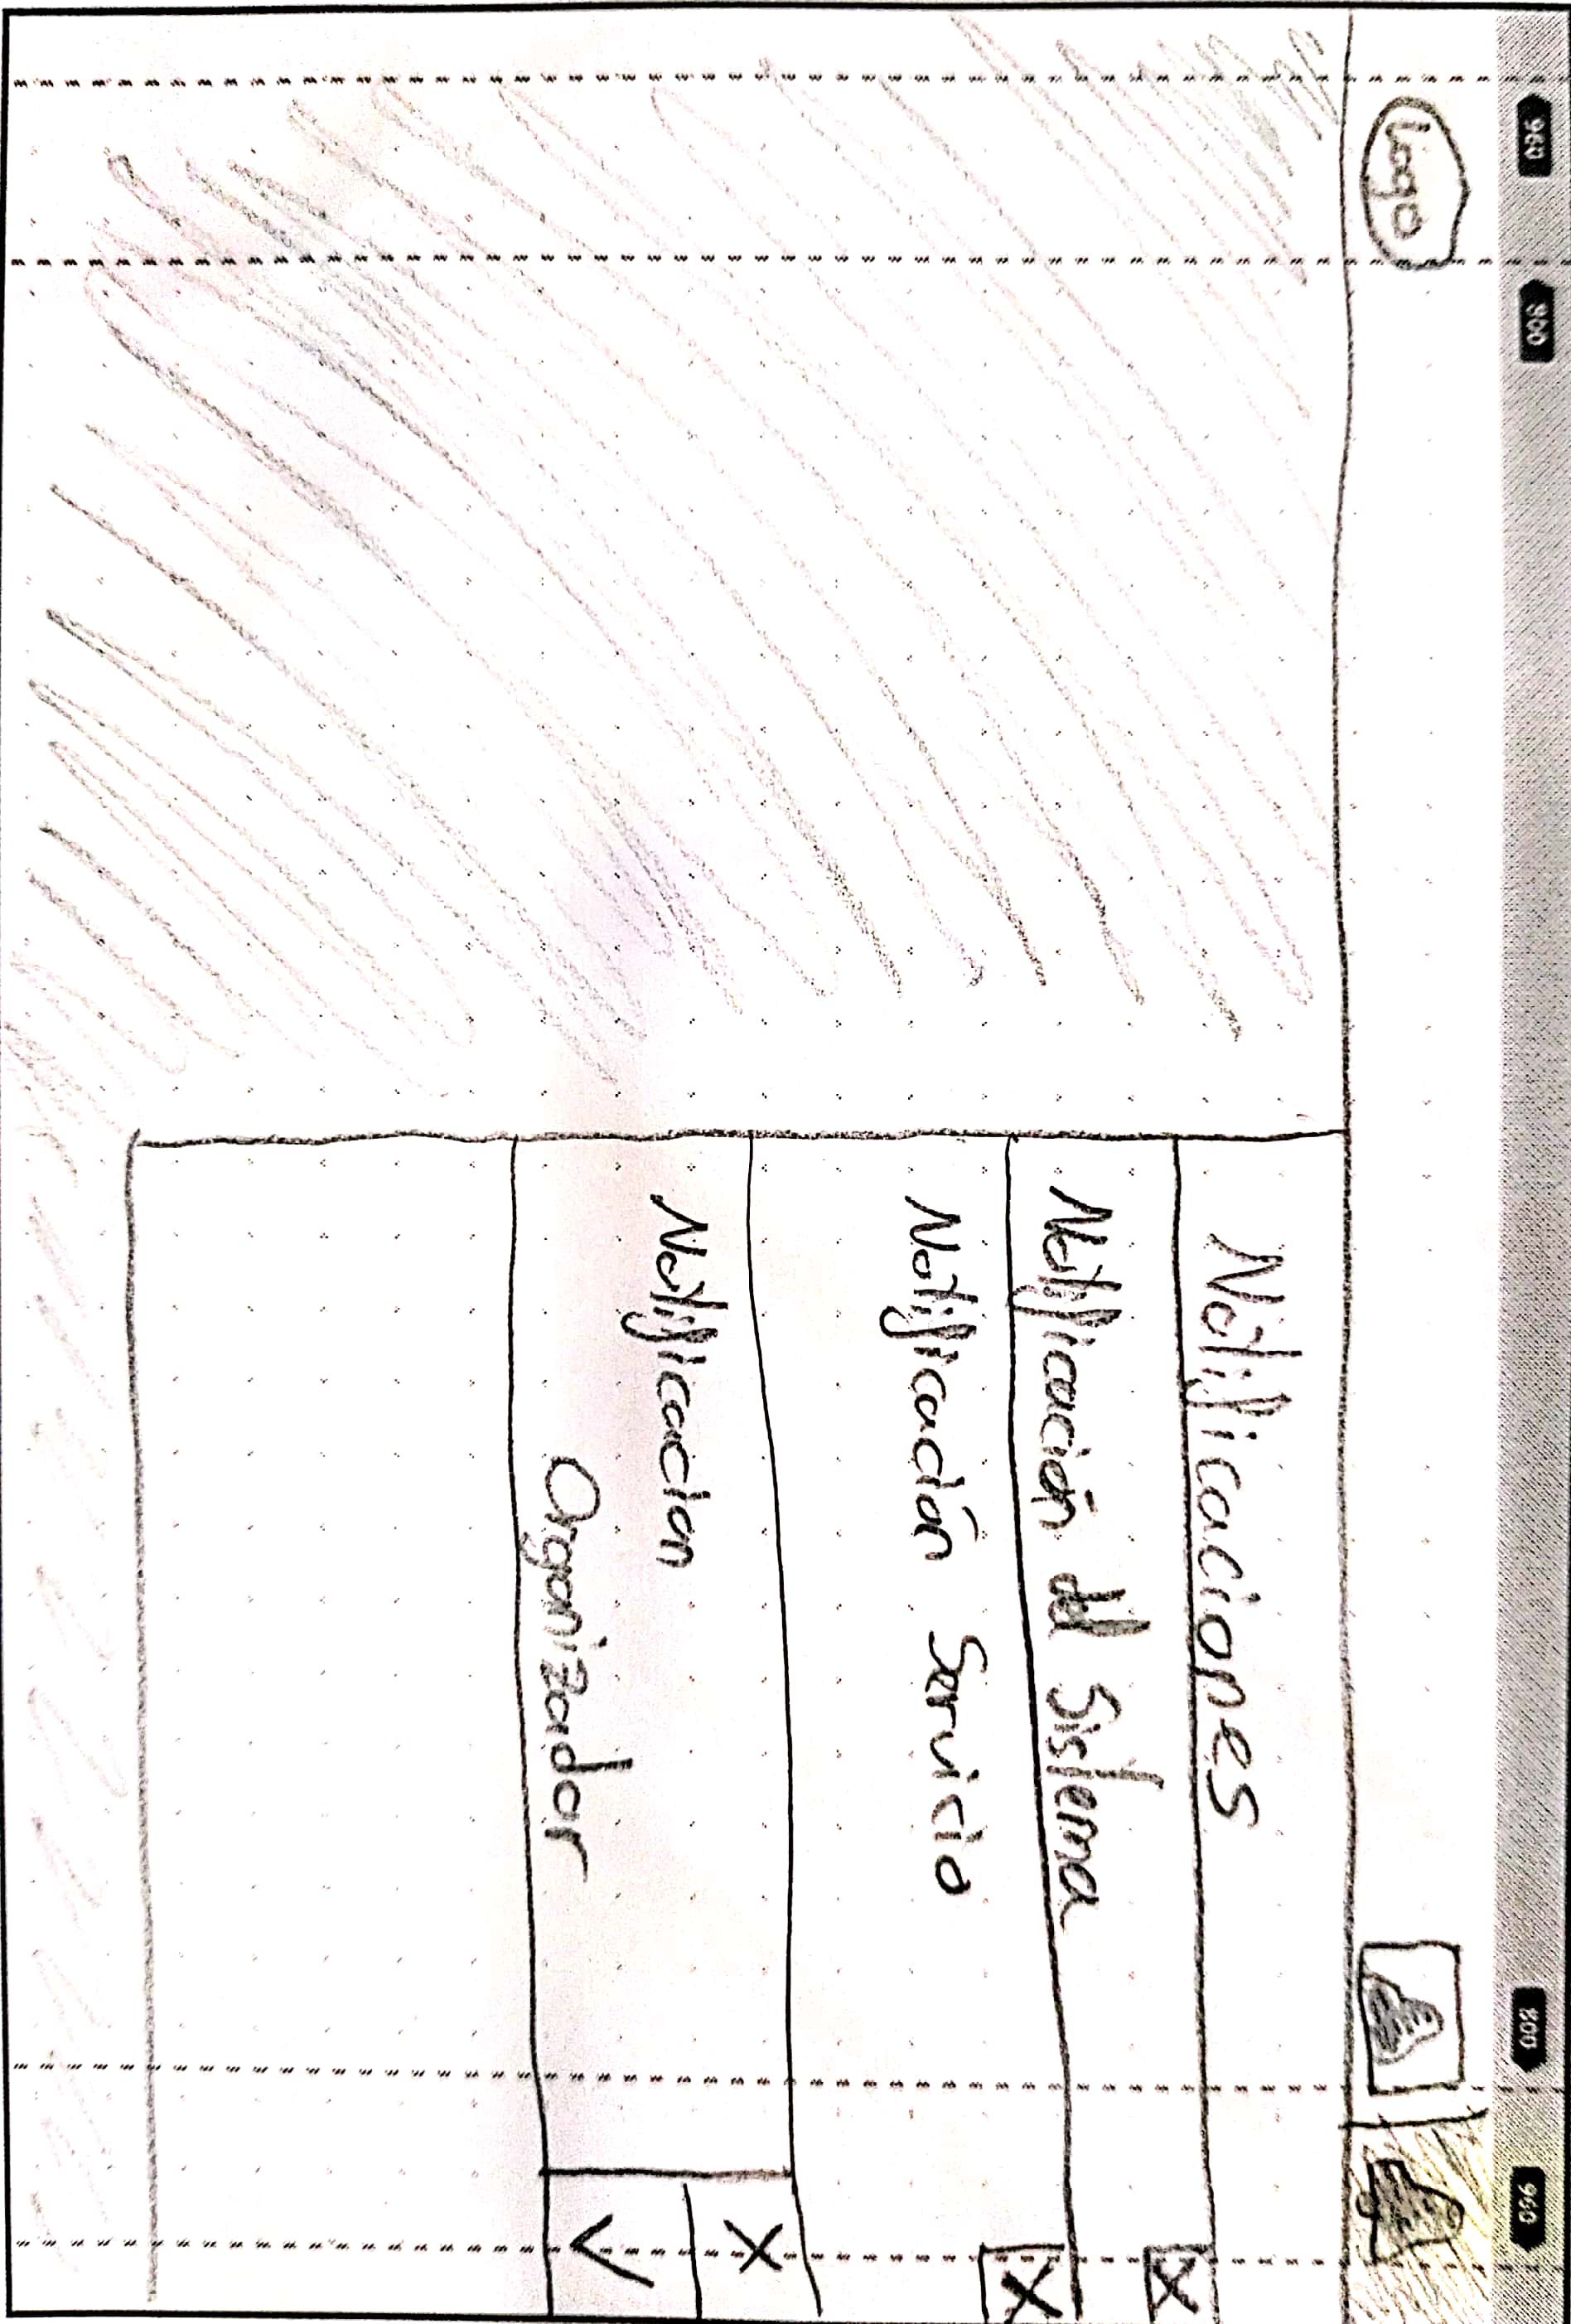 960
800
800
960
Logo
Notificaciones
Notificación del Sistema
X
Notificación Servicio
X
Notificacion
Organizador
X
✓